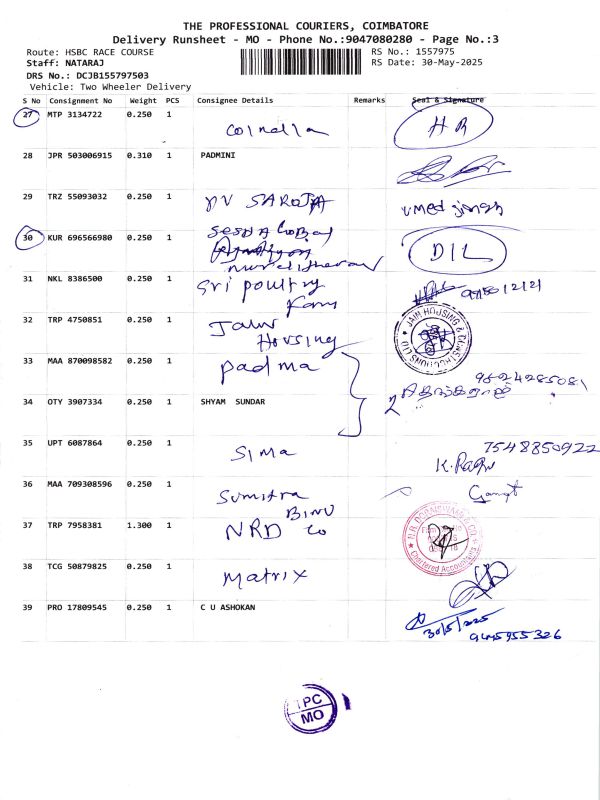 THE PROFESSIONAL COURIERS, COIMBATORE
Delivery Runsheet - MO - Phone No.:9047080280 - Page No.:3
Route: HSBC RACE COURSE
RS No.: 1557975
Staff: NATARAJ
RS Date: 30-May-2025
DRS No.: DCJB155797503
Vehicle: Two Wheeler Delivery
S No Consignment No Weight PCS Consignee Details Remarks Seal & Signature
27 MTP 3134722 0.250 1 HR
28 JPR 503006915 0.310 1 PADMINI
29 TRZ 55093032 0.250 1 PV SAROJA
30 KUR 696566980 0.250 1 DIL
31 NKL 8386500 0.250 1 Sri poultry
32 TRP 4750851 0.250 1 Jain
Housing
JAIN HOUSING & CONSTRUCTIONS LTD
33 MAA 870098582 0.250 1 Padma
34 OTY 3907334 0.250 1 SHYAM SUNDAR
35 UPT 6087864 0.250 1 Sima 7548850922
K. Ragu
36 MAA 709308596 0.250 1 Sumitra
BINU
37 TRP 7958381 1.300 1 NRD Co
Chartered Accountants
38 TCG 50879825 0.250 1 Matrix
39 PRO 17809545 0.250 1 C U ASHOKAN
30/5/2025
TPC
MO